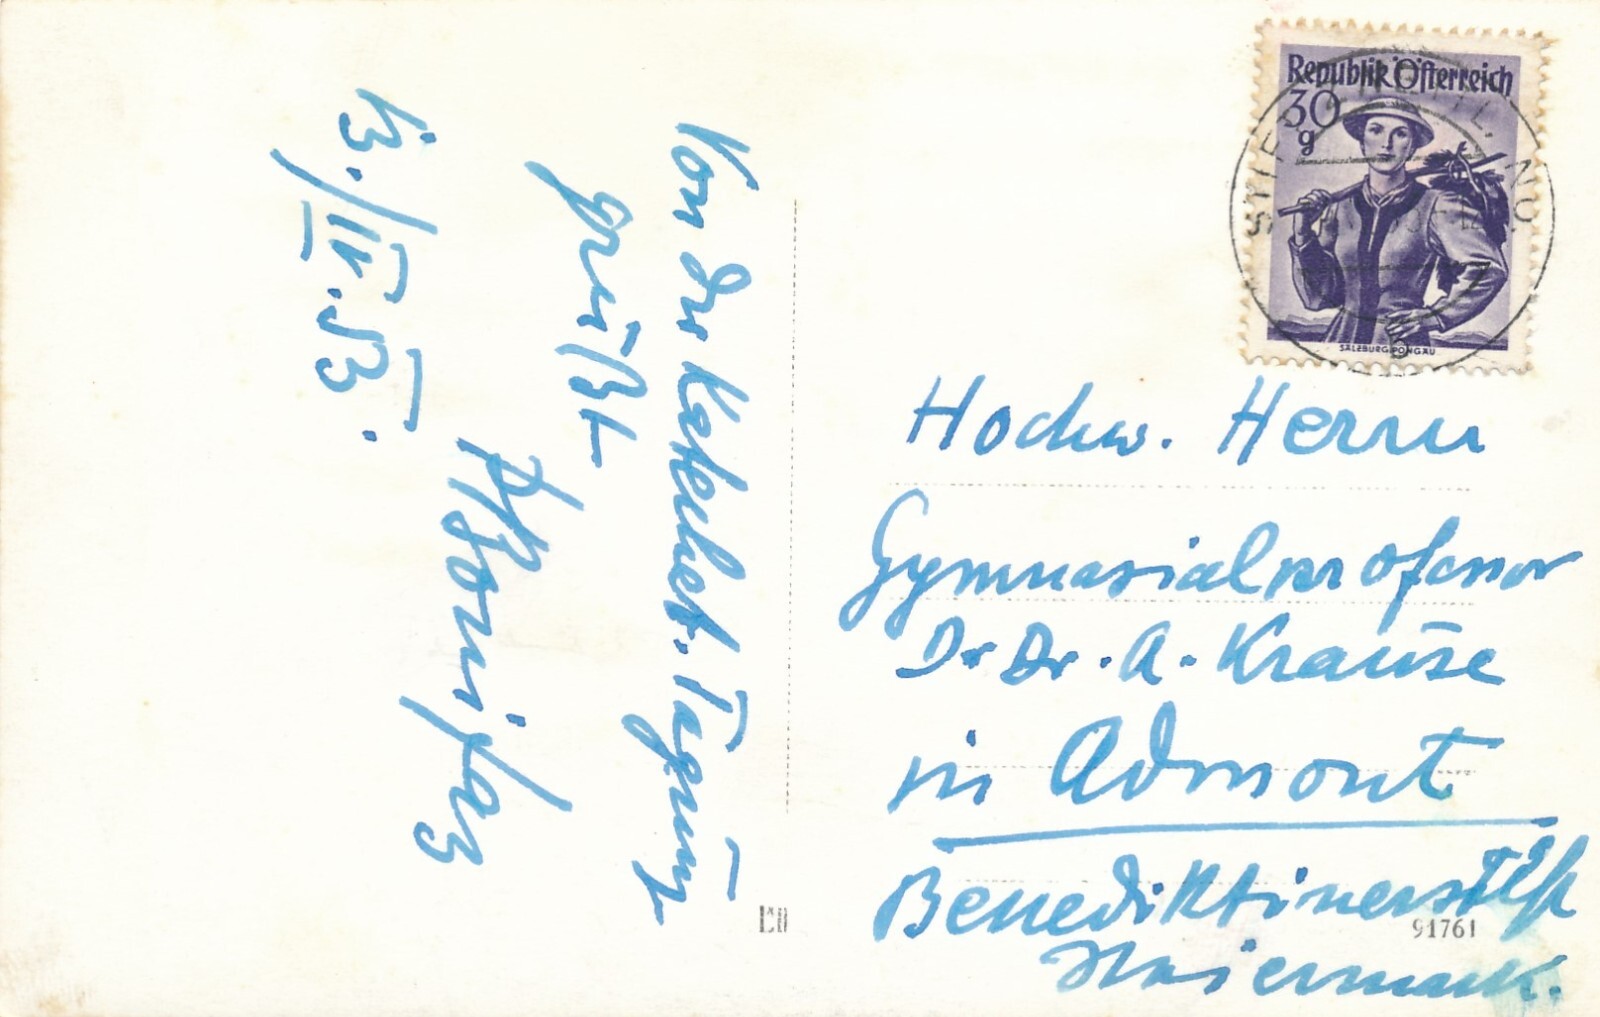 Von der Katechet. Tagung
grüßt
13./IV. 53.
Republik Österreich
30
g
SALZBURG, PONGAU
Hochw. Herrn
Gymnasialprofessor
Dr Dr. A. Krause
in Admont
Benediktinerstift
Steiermark.
91761